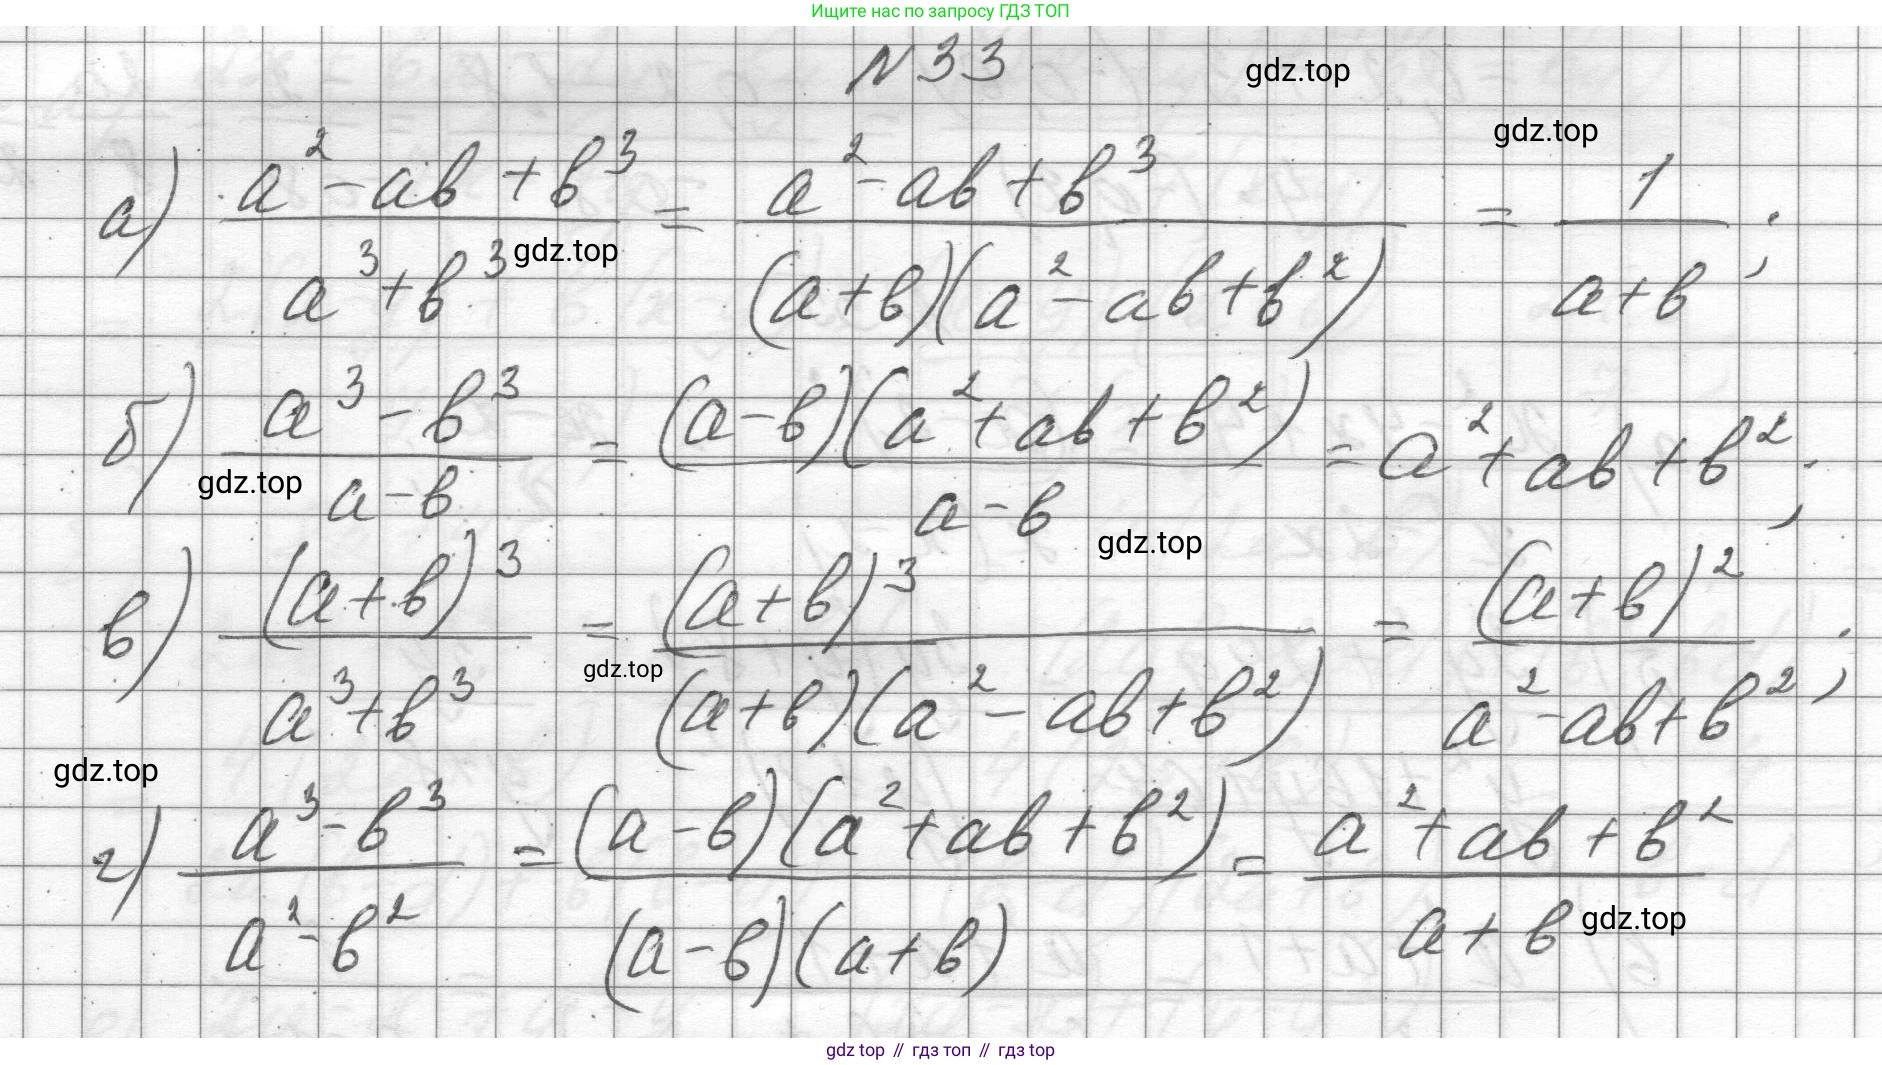 Ищите нас по запросу ГДЗ ТОП
N33
gdz.top
gdz.top
а) (a² - ab + b³)/(a³ + b³) = (a² - ab + b³)/((a + b)(a² - ab + b²)) = 1/(a + b);
gdz.top
б) (a³ - b³)/(a - b) = ((a - b)(a² + ab + b²))/(a - b) = a² + ab + b²;
gdz.top
gdz.top
в) (a + b)³/(a³ + b³) = (a + b)³/((a + b)(a² - ab + b²)) = (a + b)²/(a² - ab + b²);
gdz.top
gdz.top
г) (a³ - b³)/(a² - b²) = ((a - b)(a² + ab + b²))/((a - b)(a + b)) = (a² + ab + b²)/(a + b)
gdz.top
gdz top // гдз топ // гдз top